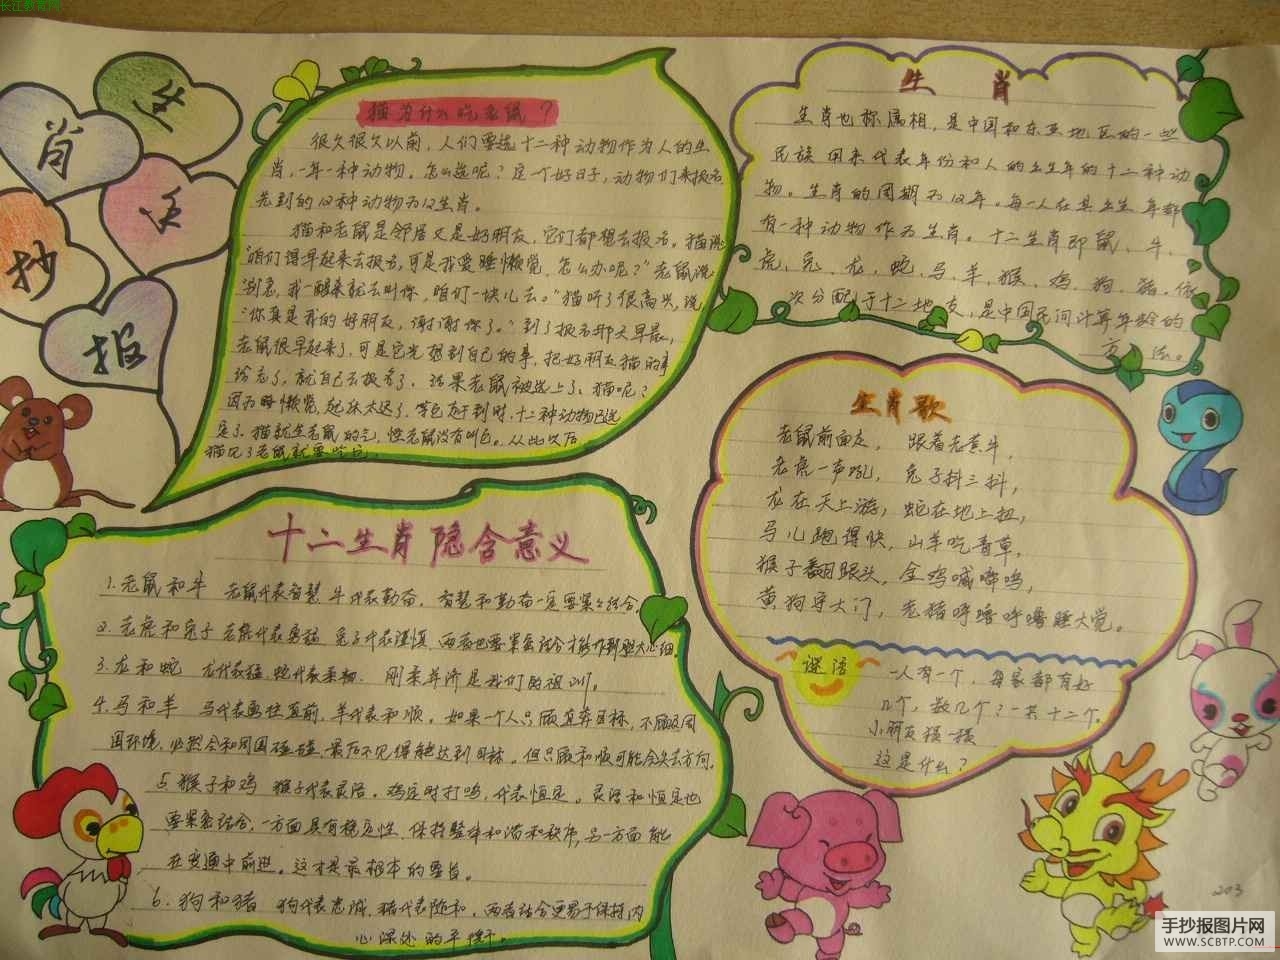 长江教育网
生
肖
手
抄
报
猫为什么吃老鼠？
很久很久以前，人们要选十二种动物作为人的生
肖，一年一种动物。怎么选呢？定一个好日子，动物们来报名
先到的12种动物为12生肖。
猫和老鼠是邻居又是好朋友，它们都想去报名。猫说
“咱们得早起来去报名，可是我爱睡懒觉，怎么办呢？”老鼠说
“别急，我一醒来就去叫你，咱们一块儿去。”猫听了很高兴，说
“你真是我的好朋友，谢谢你了。”到了报名那天早晨，
老鼠很早起来了，可是它光想到自己的事，把好朋友猫的事
给忘了，就自己去报名了，结果老鼠被选上了。猫呢？
因为睡懒觉，起床太迟了，等它赶到时，十二种动物已选
定了。猫就生老鼠的气，怪老鼠没有叫它。从此以后
猫见了老鼠就要吃它
生 肖
生肖也称属相，是中国和东亚地区的一些
民族用来代表年份和人的出生年的十二种动
物。生肖的周期为12年。每一人在其出生年都
有一种动物作为生肖。十二生肖即鼠、牛、
虎、兔、龙、蛇、马、羊、猴、鸡、狗、猪，依
次分配于十二地支，是中国民间计算年龄的
方法。
生肖歌
老鼠前面走，跟着老黄牛，
老虎一声吼，兔子抖三抖，
龙在天上游，蛇在地上扭，
马儿跑得快，山羊吃青草，
猴子翻跟头，金鸡喊嘟呜，
黄狗守大门，老猪呼噜呼噜睡大觉。
谜语
一人有一个，每家都有好
几个，数几个？一共十二个。
小朋友猜一猜
这是什么？
十二生肖隐含意义
1. 老鼠和牛 老鼠代表智慧，牛代表勤奋，智慧和勤奋一定要紧紧结合。
2. 老虎和兔子 老虎代表勇猛 兔子代表谨慎，两者也要紧密结合才能作到胆大心细。
3. 龙和蛇 龙代表猛，蛇代表柔韧. 刚柔并济是我们的祖训。
4. 马和羊 马代表勇往直前，羊代表和顺。如果一个人只顾直奔目标，不顾及周
围环境，必然会和周围磕碰，最后不见得能达到目标。但只顾和顺可能会失去方向。
5. 猴子和鸡 猴子代表灵活。鸡定时打鸣，代表恒定。灵活和恒定也
要紧密结合，一方面具有稳定性，保持整体和谐和秩序，另一方面能
在变通中前进。这才是最根本的要旨。
6. 狗和猪 狗代表忠诚，猪代表随和，两者结合更易于保持内
心深处的平衡。
203
手抄报图片网
WWW.SCBTP.COM